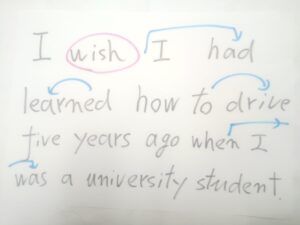 I wish I had
learned how to drive
five years ago when I
was a university student.